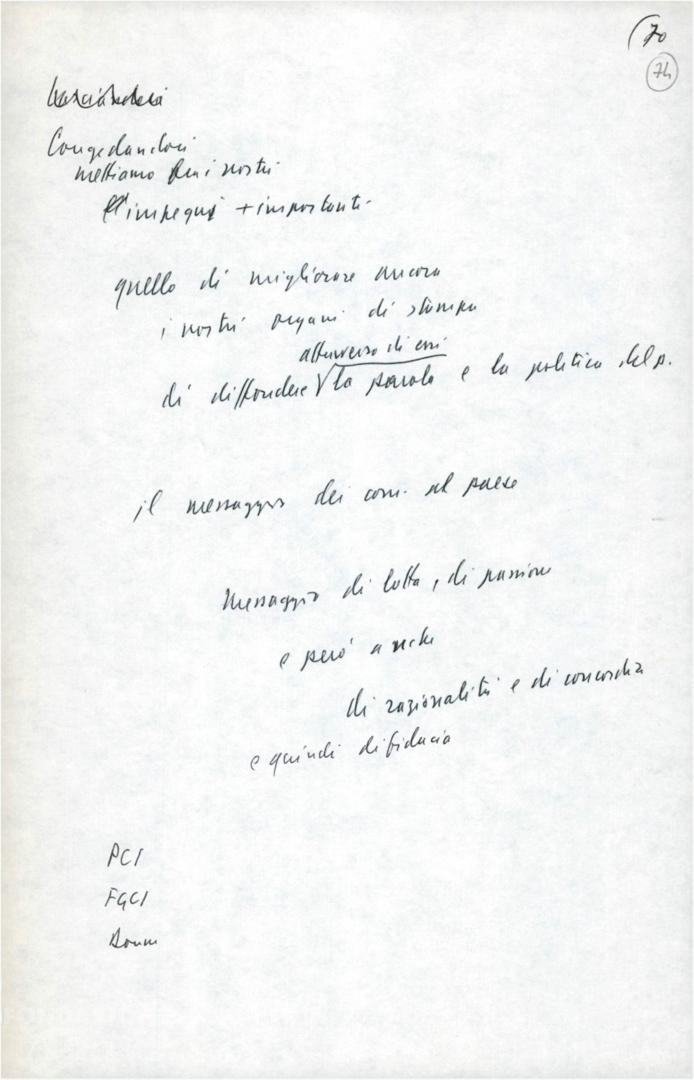 70
74
Lasciandoci
Congedandoci
mettiamo fra i nostri
impegni + importanti
quello di migliorare ancora
i nostri organi di stampa
attraverso di essi
di diffondere la parola e la politica del p.
il messaggio dei com. al paese
Messaggio di lotta, di passione
e però anche
di razionalità e di concordia
e quindi di fiducia
PCI
FGCI
Donne